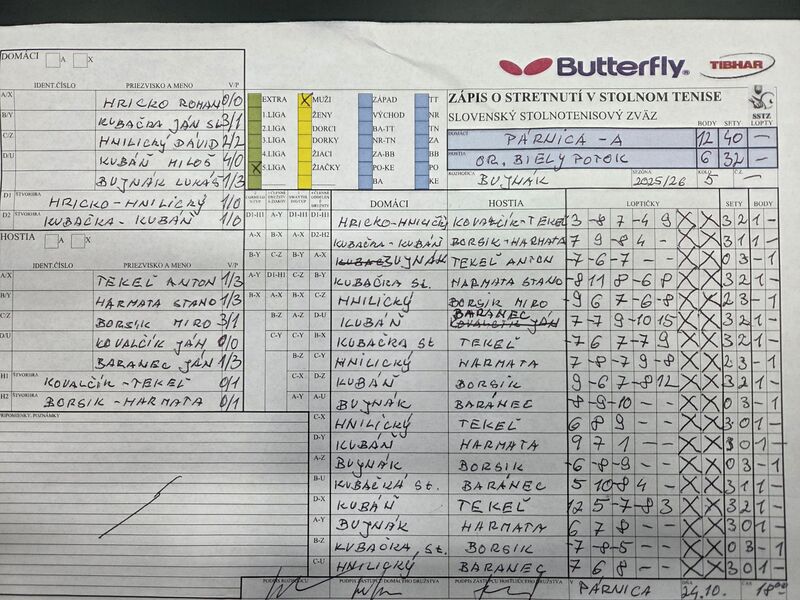 DOMÁCI A X
Butterfly® TIBHAR
IDENT.ČÍSLO PRIEZVISKO A MENO V/P
A/X HRICKO ROMAN 0/0
B/Y KUBAČKA JÁN St. 3/1
C/Z HNILICKÝ DÁVID 2/2
D/U KUBÁŇ MILOŠ 4/0
BUJNÁK LUKÁŠ 1/3
D1 ŠTVORHRA HRICKO-HNILICKÝ 1/0
D2 ŠTVORHRA KUBAČKA-KUBÁŇ 1/0
HOSTIA A X
IDENT.ČÍSLO PRIEZVISKO A MENO V/P
A/X TEKEĽ ANTON 1/3
B/Y HARMATA STANO 1/3
C/Z BORSÍK MIRO 3/1
D/U KOVALČÍK JÁN 0/0
BARANEC JÁN 1/3
H1 ŠTVORHRA KOVALČÍK-TEKEĽ 0/1
H2 ŠTVORHRA BORSIK-HARMATA 0/1
PRIPOMIENKY, POZNÁMKY
EXTRA X MUŽI ZÁPAD TT
1.LIGA ŽENY VÝCHOD NR
2.LIGA DORCI BA-TT TN
3.LIGA DORKY NR-TN ZA
4.LIGA ŽIACI ZA-BB BB
X 5.LIGA ŽIAČKY PO-KE PO
BA KE
ZÁPIS O STRETNUTÍ V STOLNOM TENISE
SLOVENSKÝ STOLNOTENISOVÝ ZVÄZ SSTZ
BODY SETY LOPTY
DOMÁCI PÁRNICA-A 12 40 -
HOSTIA OR. BIELY POTOK 6 32 -
ROZHODCA BUJNÁK SEZÓNA 2025/26 KOLO 5 Č.Z. -
DOMÁCI HOSTIA LOPTIČKY SETY BODY
D1-H1 A-Y D1-H1 D1-H1 HRICKO-HNILICKÝ KOVALČÍK-TEKEĽ 3 -8 7 -4 9 X X 3 2 1 -
A-X B-X A-X D2-H2 KUBAČKA-KUBÁŇ BORSIK-HARMATA 7 9 -8 4 - X X 3 1 1 -
B-Y C-Z B-Y A-X BUJNÁK TEKEĽ ANTON -7 -6 -7 - - X X 0 3 - 1
A-Y D1-H1 C-Z B-Y KUBAČKA St. HARMATA STANO -8 11 8 -6 8 X X 3 2 1 -
B-X A-X B-X C-Z HNILICKÝ BORSIK MIRO -9 6 7 -6 -8 X X 2 3 - 1
B-Z A-Z D-U KUBÁŇ BARANEC 7 -7 9 -10 15 X X 3 2 1 -
C-Y C-Y B-X KUBAČKA St TEKEĽ -7 6 7 -7 9 X X 3 2 1 -
B-Z C-Y HNILICKÝ HARMATA 7 -8 -7 9 -8 X X 2 3 - 1
C-X D-Z KUBÁŇ BORSIK -9 6 -7 -8 12 X X 3 2 1 -
A-Y A-U BUJNÁK BARÁNEC -8 -9 -10 - - X X 0 3 - 1
C-X HNILICKÝ TEKEĽ 6 8 9 - - X X 3 0 1 -
D-Y KUBÁŇ HARMATA 9 7 1 - - X X 3 0 1 -
A-Z BUJNÁK BORSIK -6 -8 -9 - - X X 0 3 - 1
B-U KUBAČKA St. BARÁNEC 5 10 -8 4 - X X 3 1 1 -
D-X KUBÁŇ TEKEĽ 12 5 -7 -8 3 X X 3 2 1 -
A-Y BUJNÁK HARMATA 6 7 8 - - X X 3 0 1 -
B-Z KUBAČKA St. BORSIK -7 -8 -5 - - X X 0 3 - 1
C-U HNILICKÝ BARANEC 7 6 8 - - X X 3 0 1 -
PODPIS ROZHODCU PODPIS ZÁSTUPCU DOMÁCEHO DRUŽSTVA PODPIS ZÁSTUPCU HOSŤUJÚCEHO DRUŽSTVA V PÁRNICA DŇA 24.10. ČAS 18⁰⁰